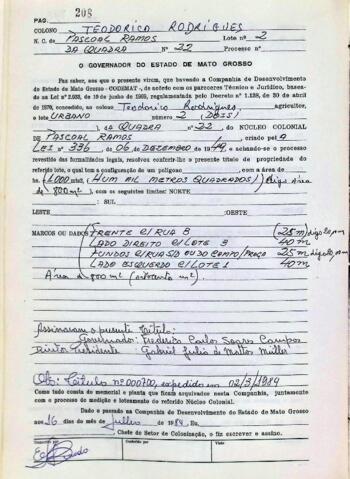 PAG. 208
COLONO TEODORICO RODRIGUES
N. C. de PASCOAL RAMOS Lote nº 2
DA QUADRA Nº 22 Processo nº
O GOVERNADOR DO ESTADO DE MATO GROSSO
Faz saber, aos que o presente virem, que havendo a Companhia de Desenvolvimento
do Estado de Mato Grosso - CODEMAT -, de acordo com os pareceres Técnico e Jurídico, basea-
da Lei nº 2.933, de 19 de junho de 1969, regulamentada pelo Decreto nº 1.138, de 30 de abril
de 1970, concedido, ao colono Teodorico Rodrigues, agricultor,
o lote URBANO número 2 (DOIS)
), da QUADRA nº 22, do NÚCLEO COLONIAL
DE PASCOAL RAMOS criado pela
LEI nº 336, de 06 de DEZEMBRO de 1949, e achando-se o processo
revestido das formalidades legais, resolvem conferir-lhe o presente título de propriedade do
referido lote, o qual tem a configuração de um polígono com a área de
ha. (1.000 mts2. (HUM MIL METROS QUADRADOS) (digo área
de 800 m²), com os seguintes limites: NORTE
: SUL
LESTE :OESTE
MARCOS OU DADOS: FRENTE C/ RUA B 25 m) digo 20,00m
LADO DIREITO C/ LOTE 3 40 m
FUNDOS C/ RUA S/D OU DO CAMPO/PRAÇO 25 m) digo 20,00m
LADO ESQUERDO C/ LOTE 1 40 m
Área de 800 m² (oitocentos m²).
Assinaram o presente Título:
Governador: Frederico Carlos Soares Campos
Diretor Presidente: Gabriel Júlio de Mattos Müller
Obs: Título nº 000700, expedido em 02/3/1984
Como tudo consta do memorial e planta que ficam arquivados nesta Companhia, juntamente
com o processo de medição e loteamento do referido Núcleo Colonial.
Dado e passado na Companhia de Desenvolvimento do Estado de Mato Grosso
aos 16 dias do mês de Julho de 1984 Eu,
Chefe do Setor de Colonização, o fiz escrever e assino.
Escrito por
Conferido por
Visto